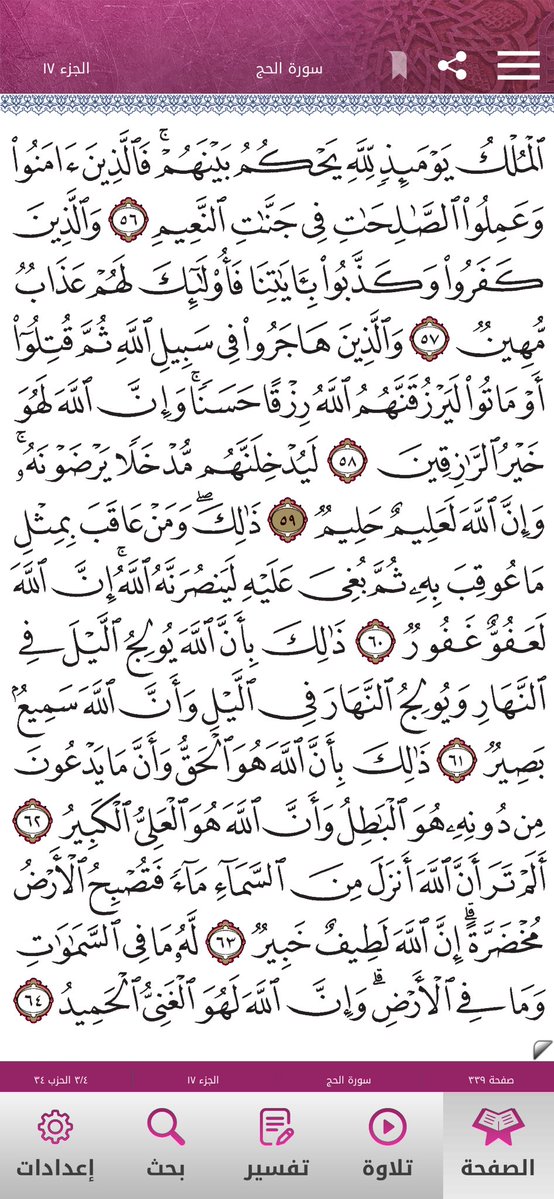 الجزء ١٧
سورة الحج
ٱلْمُلْكُ يَوْمَئِذٍ لِّلَّهِ يَحْكُمُ بَيْنَهُمْ ۚ فَٱلَّذِينَ ءَامَنُوا۟
وَعَمِلُوا۟ ٱلصَّـٰلِحَـٰتِ فِى جَنَّـٰتِ ٱلنَّعِيمِ ٥٦ وَٱلَّذِينَ
كَفَرُوا۟ وَكَذَّبُوا۟ بِـَٔايَـٰتِنَا فَأُو۟لَـٰٓئِكَ لَهُمْ عَذَابٌ
مُّهِينٌ ٥٧ وَٱلَّذِينَ هَاجَرُوا۟ فِى سَبِيلِ ٱللَّهِ ثُمَّ قُتِلُوٓا۟
أَوْ مَاتُوا۟ لَيَرْزُقَنَّهُمُ ٱللَّهُ رِزْقًا حَسَنًا ۚ وَإِنَّ ٱللَّهَ لَهُوَ
خَيْرُ ٱلرَّٰزِقِينَ ٥٨ لَيُدْخِلَنَّهُم مُّدْخَلًا يَرْضَوْنَهُۥ ۗ
وَإِنَّ ٱللَّهَ لَعَلِيمٌ حَلِيمٌ ٥٩ ذَٰلِكَ ۖ وَمَنْ عَاقَبَ بِمِثْلِ
مَا عُوقِبَ بِهِۦ ثُمَّ بُغِىَ عَلَيْهِ لَيَنصُرَنَّهُ ٱللَّهُ ۗ إِنَّ ٱللَّهَ
لَعَفُوٌّ غَفُورٌ ٦٠ ذَٰلِكَ بِأَنَّ ٱللَّهَ يُولِجُ ٱلَّيْلَ فِى
ٱلنَّهَارِ وَيُولِجُ ٱلنَّهَارَ فِى ٱلَّيْلِ وَأَنَّ ٱللَّهَ سَمِيعٌۢ
بَصِيرٌ ٦١ ذَٰلِكَ بِأَنَّ ٱللَّهَ هُوَ ٱلْحَقُّ وَأَنَّ مَا يَدْعُونَ
مِن دُونِهِۦ هُوَ ٱلْبَـٰطِلُ وَأَنَّ ٱللَّهَ هُوَ ٱلْعَلِىُّ ٱلْكَبِيرُ ٦٢
أَلَمْ تَرَ أَنَّ ٱللَّهَ أَنزَلَ مِنَ ٱلسَّمَآءِ مَآءً فَتُصْبِحُ ٱلْأَرْضُ
مُخْضَرَّةً ۗ إِنَّ ٱللَّهَ لَطِيفٌ خَبِيرٌ ٦٣ لَّهُۥ مَا فِى ٱلسَّمَـٰوَٰتِ
وَمَا فِى ٱلْأَرْضِ ۗ وَإِنَّ ٱللَّهَ لَهُوَ ٱلْغَنِىُّ ٱلْحَمِيدُ ٦٤
صفحة ٣٣٩ سورة الحج الجزء ١٧ ٣/٤ الحزب ٣٤
الصفحة تلاوة تفسير بحث إعدادات